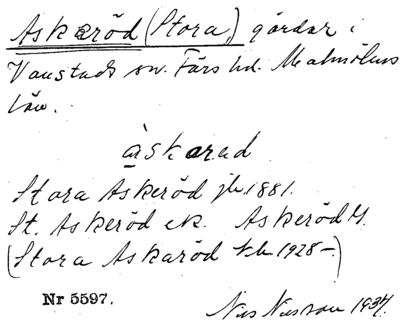 Askeröd (Stora) gårdar i
Vanstads sn. Färs hd. Malmöhus
län.
àskarad
Stora Askeröd jb 1881.
St. Askeröd ek. Askeröd G.
(Stora Askaröd tb 1928-)
Nr 5597.
Nils Nilsson 1934.